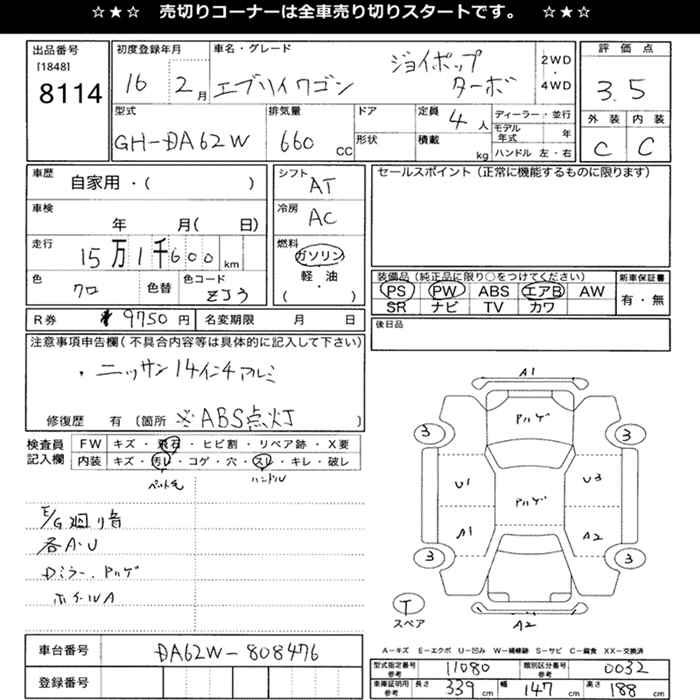 ☆ ★ ☆ 売切りコーナーは全車売り切りスタートです。 ☆ ★ ☆
出品番号
[1848]
8114
初度登録年月
16 2月
車名・グレード
エブリイワゴン
ジョイポップ
ターボ
2WD
・
4WD
評価点
3.5
外装 内装
C C
型式
GH-DA62W
排気量
660 CC
ドア
形状
定員
4人
積載
kg
ディーラー・並行
モデル年式 年
ハンドル 左・右
車歴
自家用・( )
車検
年 月( 日)
走行
15万1千600 km
色
クロ
色替
色コード
ZJ3
シフト
AT
冷房
AC
燃料
ガソリン
軽・油
( )
セールスポイント(正常に機能するものに限ります)
装備品(純正品に限り○をつけてください)
PS PW ABS エアB AW
SR ナビ TV カワ
新車保証書
有・無
R券
¥9750 円
名変期限 月 日
後日品
注意事項申告欄(不具合内容等は具体的に記入して下さい)
・ニッサン14インチアルミ
修復歴 有(箇所 ※ABS点灯
検査員
記入欄
FW キズ・飛石・ヒビ割・リペア跡・X要
内装 キズ・汚レ・コゲ・穴・スレ・キレ・破レ
ペット毛
ハンドル
E/G廻り音
各A・U
Dミラー、ドハゲ
ホイールA
A1
3 3
U1 U3
A1 A2
3 3
T
スペア
A2
A-キズ E-エクボ U-凹み W-補修跡 S-サビ C-腐食 XX-交換済
車台番号
DA62W-808476
登録番号
型式指定番号
参考
11080
類別区分番号
参考
0032
車庫証明用
参考
長さ 339 cm 幅 147 cm 高さ 188 cm